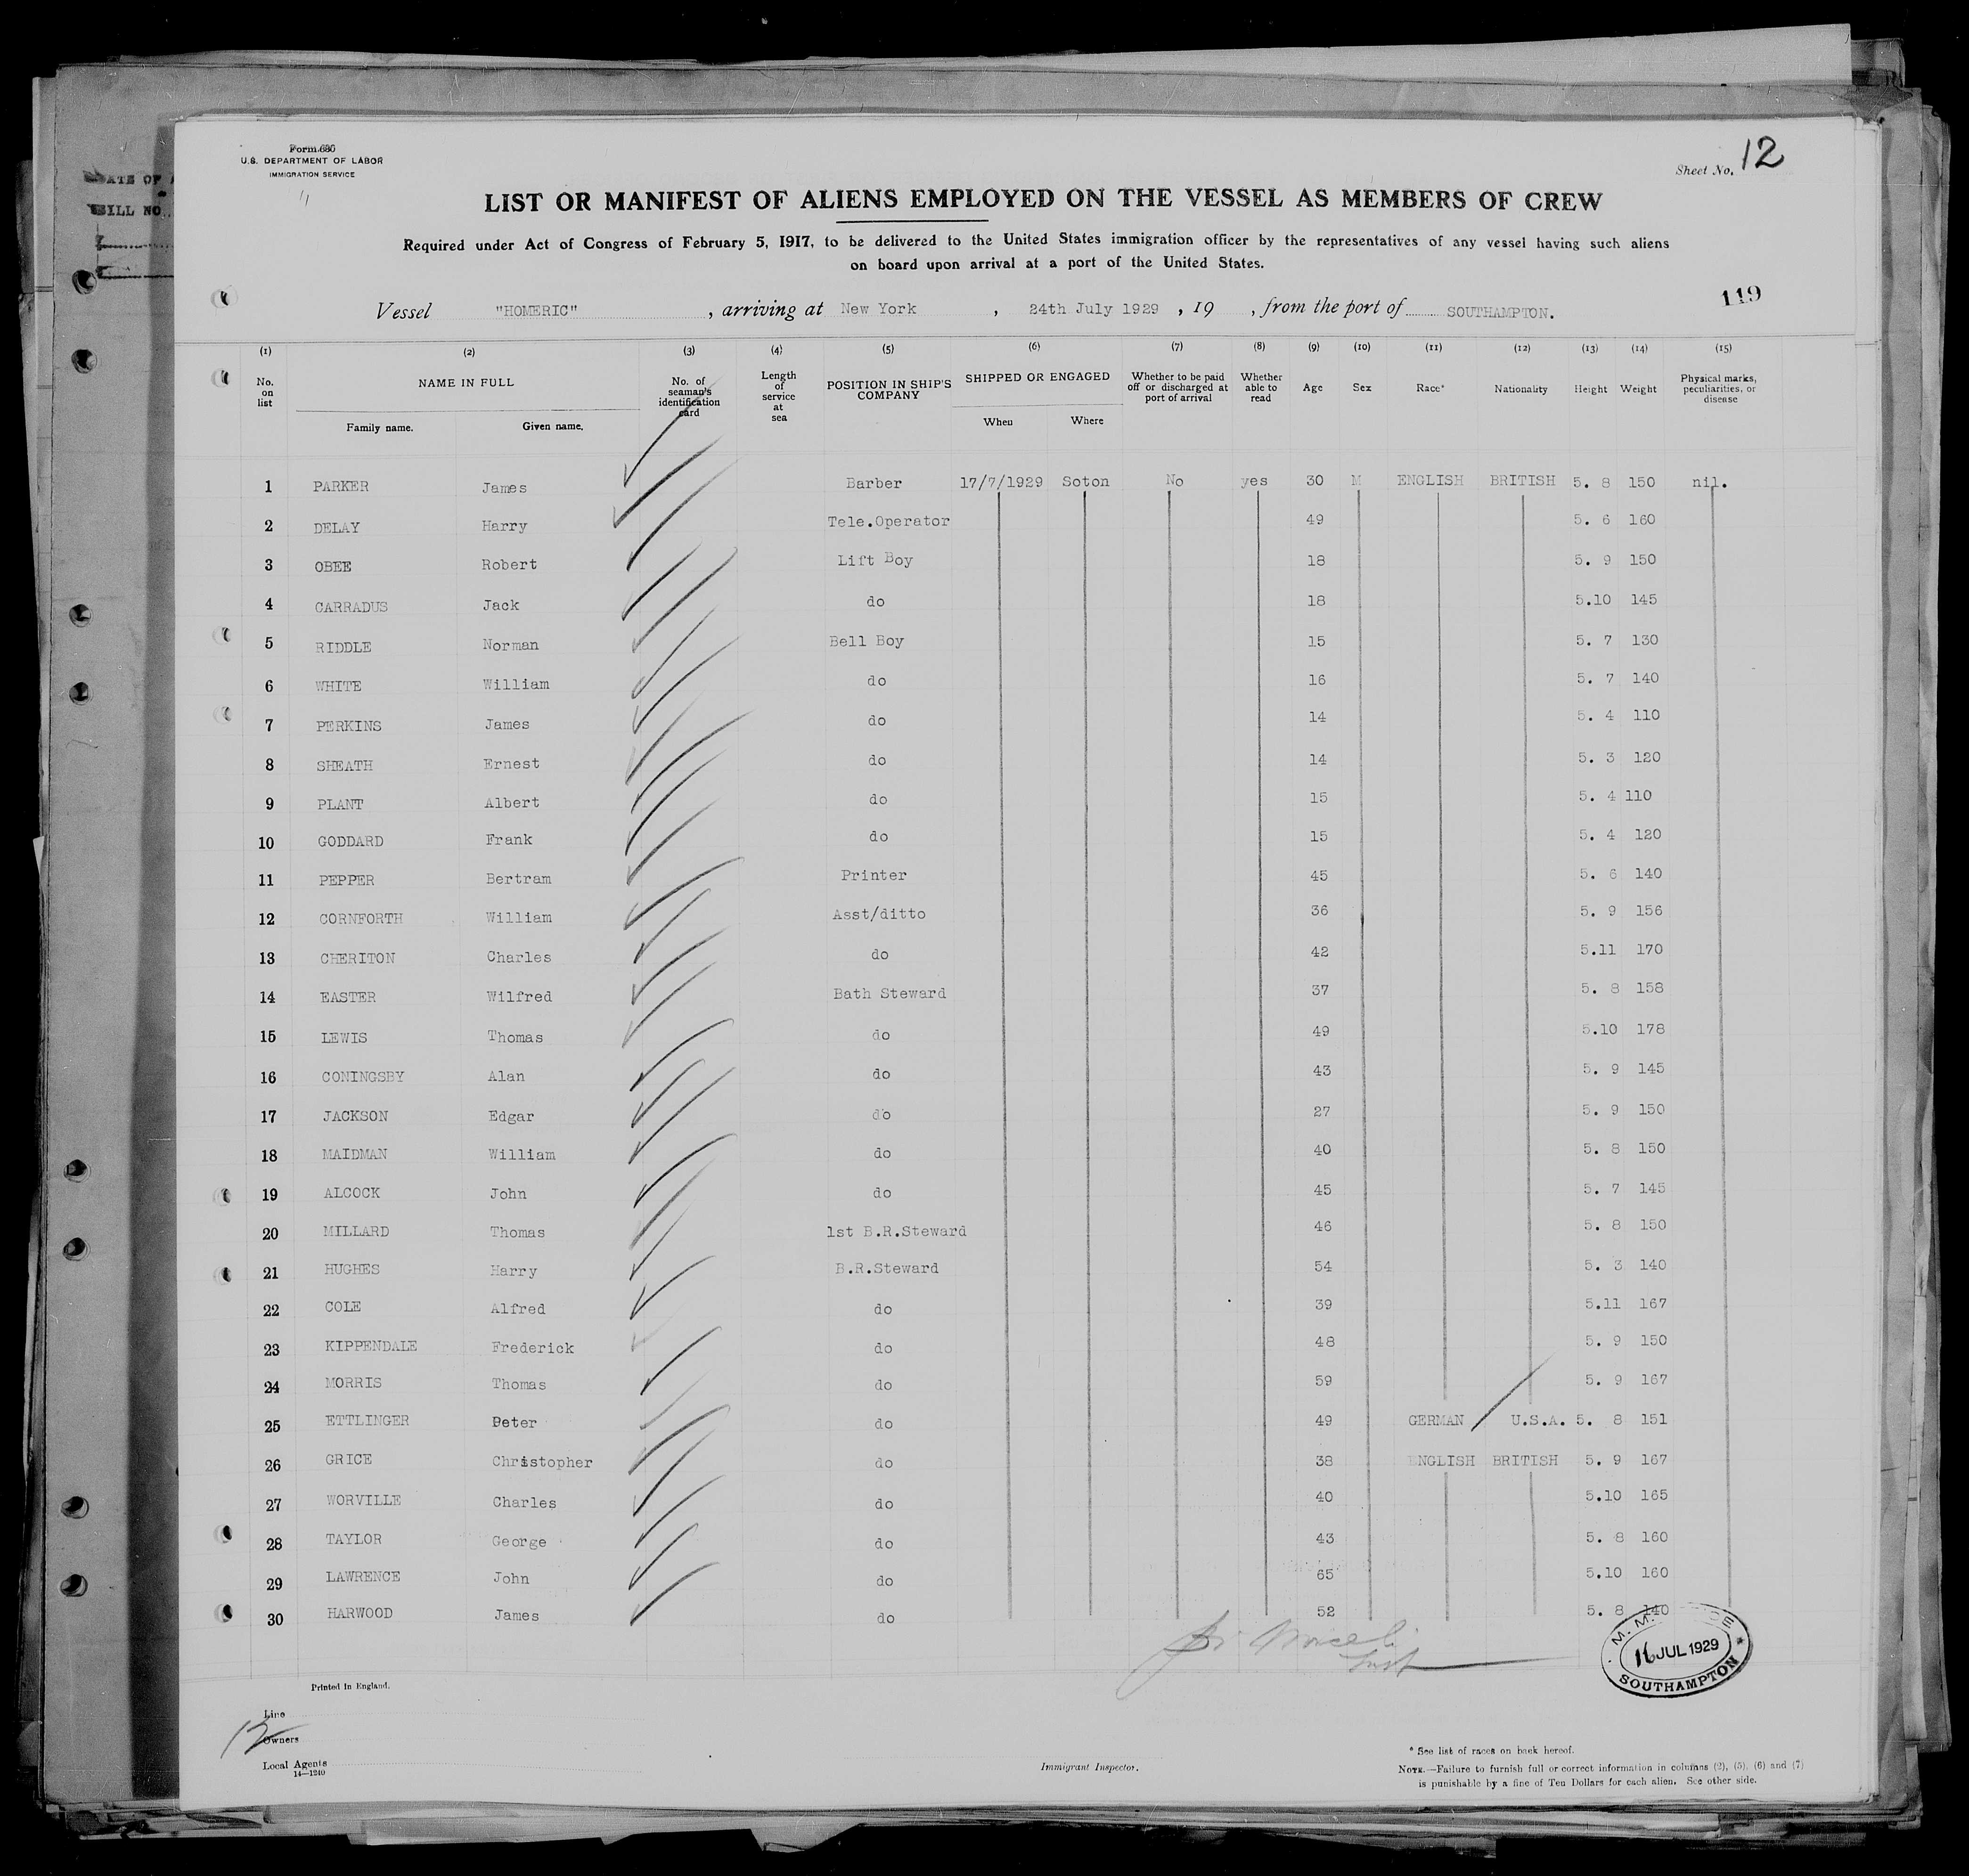 Form 686
U.S. DEPARTMENT OF LABOR
IMMIGRATION SERVICE
Sheet No. 12
LIST OR MANIFEST OF ALIENS EMPLOYED ON THE VESSEL AS MEMBERS OF CREW
Required under Act of Congress of February 5, 1917, to be delivered to the United States immigration officer by the representatives of any vessel having such aliens
on board upon arrival at a port of the United States.
119
Vessel "HOMERIC" , arriving at New York , 24th July 1929 , 19 , from the port of SOUTHAMPTON.
(1) (2) (3) (4) (5) (6) (7) (8) (9) (10) (11) (12) (13) (14) (15)
No. on list NAME IN FULL Family name. Given name. No. of seaman's identification card Length of service at sea POSITION IN SHIP'S COMPANY SHIPPED OR ENGAGED When Where Whether to be paid off or discharged at port of arrival Whether able to read Age Sex Race* Nationality Height Weight Physical marks, peculiarities, or disease
1 PARKER James Barber 17/7/1929 Soton No yes 30 M ENGLISH BRITISH 5. 8 150 nil.
2 DELAY Harry Tele.Operator 49 5. 6 160
3 OBEE Robert Lift Boy 18 5. 9 150
4 CARRADUS Jack do 18 5.10 145
5 RIDDLE Norman Bell Boy 15 5. 7 130
6 WHITE William do 16 5. 7 140
7 PERKINS James do 14 5. 4 110
8 SHEATH Ernest do 14 5. 3 120
9 PLANT Albert do 15 5. 4 110
10 GODDARD Frank do 15 5. 4 120
11 PEPPER Bertram Printer 45 5. 6 140
12 CORNFORTH William Asst/ditto 36 5. 9 156
13 CHERITON Charles do 42 5.11 170
14 EASTER Wilfred Bath Steward 37 5. 8 158
15 LEWIS Thomas do 49 5.10 178
16 CONINGSBY Alan do 43 5. 9 145
17 JACKSON Edgar do 27 5. 9 150
18 MAIDMAN William do 40 5. 8 150
19 ALCOCK John do 45 5. 7 145
20 MILLARD Thomas 1st B.R.Steward 46 5. 8 150
21 HUGHES Harry B.R.Steward 54 5. 3 140
22 COLE Alfred do 39 5.11 167
23 KIPPENDALE Frederick do 48 5. 9 150
24 MORRIS Thomas do 59 5. 9 167
25 ETTLINGER Peter do 49 GERMAN U.S.A. 5. 8 151
26 GRICE Christopher do 38 ENGLISH BRITISH 5. 9 167
27 WORVILLE Charles do 40 5.10 165
28 TAYLOR George do 43 5. 8 160
29 LAWRENCE John do 65 5.10 160
30 HARWOOD James do 52 5. 8 140
16 JUL 1929
SOUTHAMPTON
Printed in England.
Line
12
Owners
Local Agents
14—1240
Immigrant Inspector.
* See list of races on back hereof.
NOTE.—Failure to furnish full or correct information in columns (2), (5), (6) and (7)
is punishable by a fine of Ten Dollars for each alien. See other side.